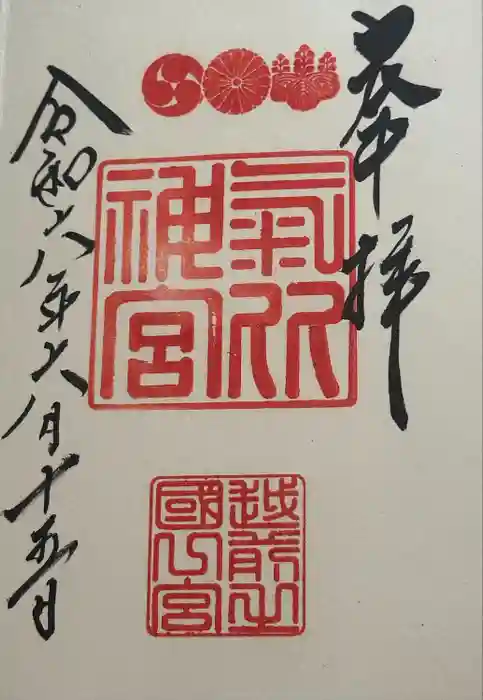 奉拝
氣比
神宮
越前
國 宮
令和六年六月十五日